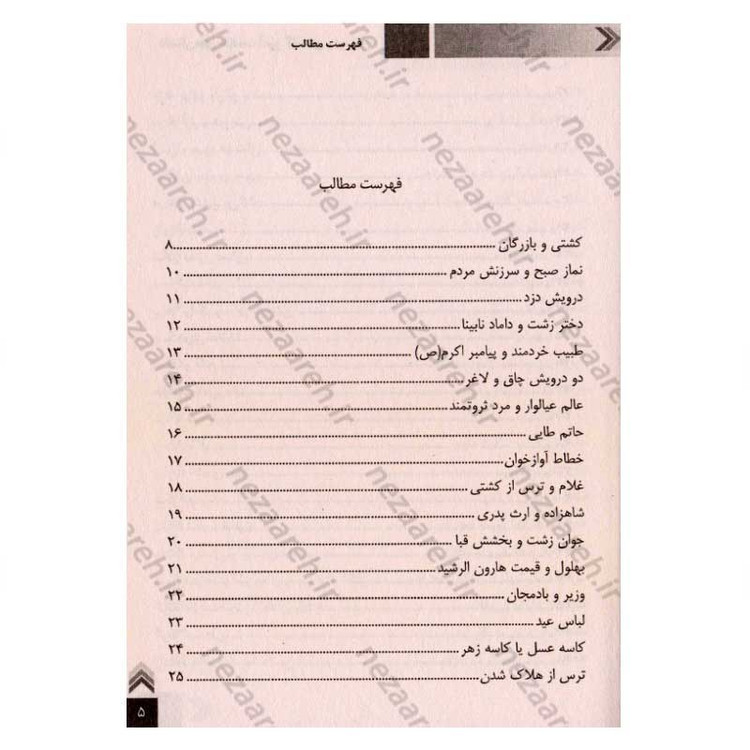 فهرست مطالب
فهرست مطالب
کشتی و بازرگان ........ ۸
نماز صبح و سرزنش مردم ........ ۱۰
درویش دزد ........ ۱۱
دختر زشت و داماد نابینا ........ ۱۲
طبیب خردمند و پیامبر اکرم(ص) ........ ۱۳
دو درویش چاق و لاغر ........ ۱۴
عالم عیالوار و مرد ثروتمند ........ ۱۵
حاتم طایی ........ ۱۶
خطاط آوازخوان ........ ۱۷
غلام و ترس از کشتی ........ ۱۸
شاهزاده و ارث پدری ........ ۱۹
جوان زشت و بخشش قبا ........ ۲۰
بهلول و قیمت هارون الرشید ........ ۲۱
وزیر و بادمجان ........ ۲۲
لباس عید ........ ۲۳
کاسه عسل یا کاسه زهر ........ ۲۴
ترس از هلاک شدن ........ ۲۵
۵
nezaareh.ir